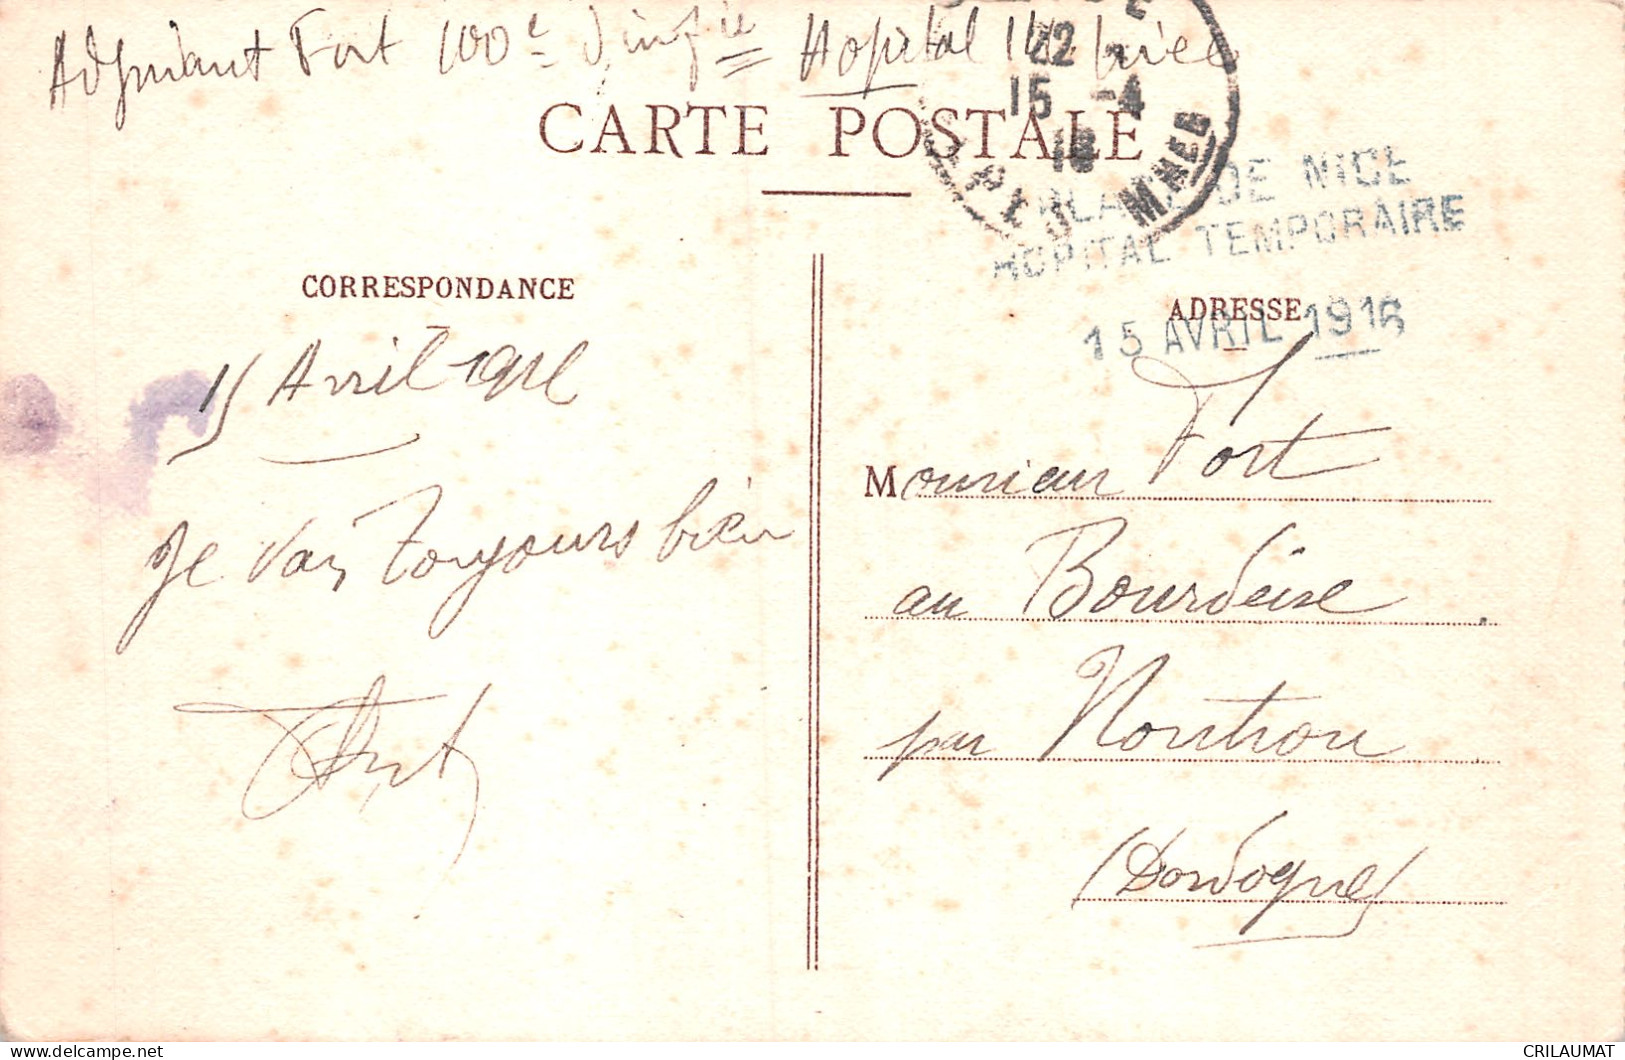 Adjudant Fort 100e d'infie Hopital Nice
22
15 -4
16
CARTE POSTALE
PLACE DE NICE
HOPITAL TEMPORAIRE
15 AVRIL 1916
CORRESPONDANCE
ADRESSE
15 Avril 1916
Je vais toujours bien
Fort
Monsieur Fort
au Bourdeix
par Nontron
(Dordogne)
CRILAUMAT